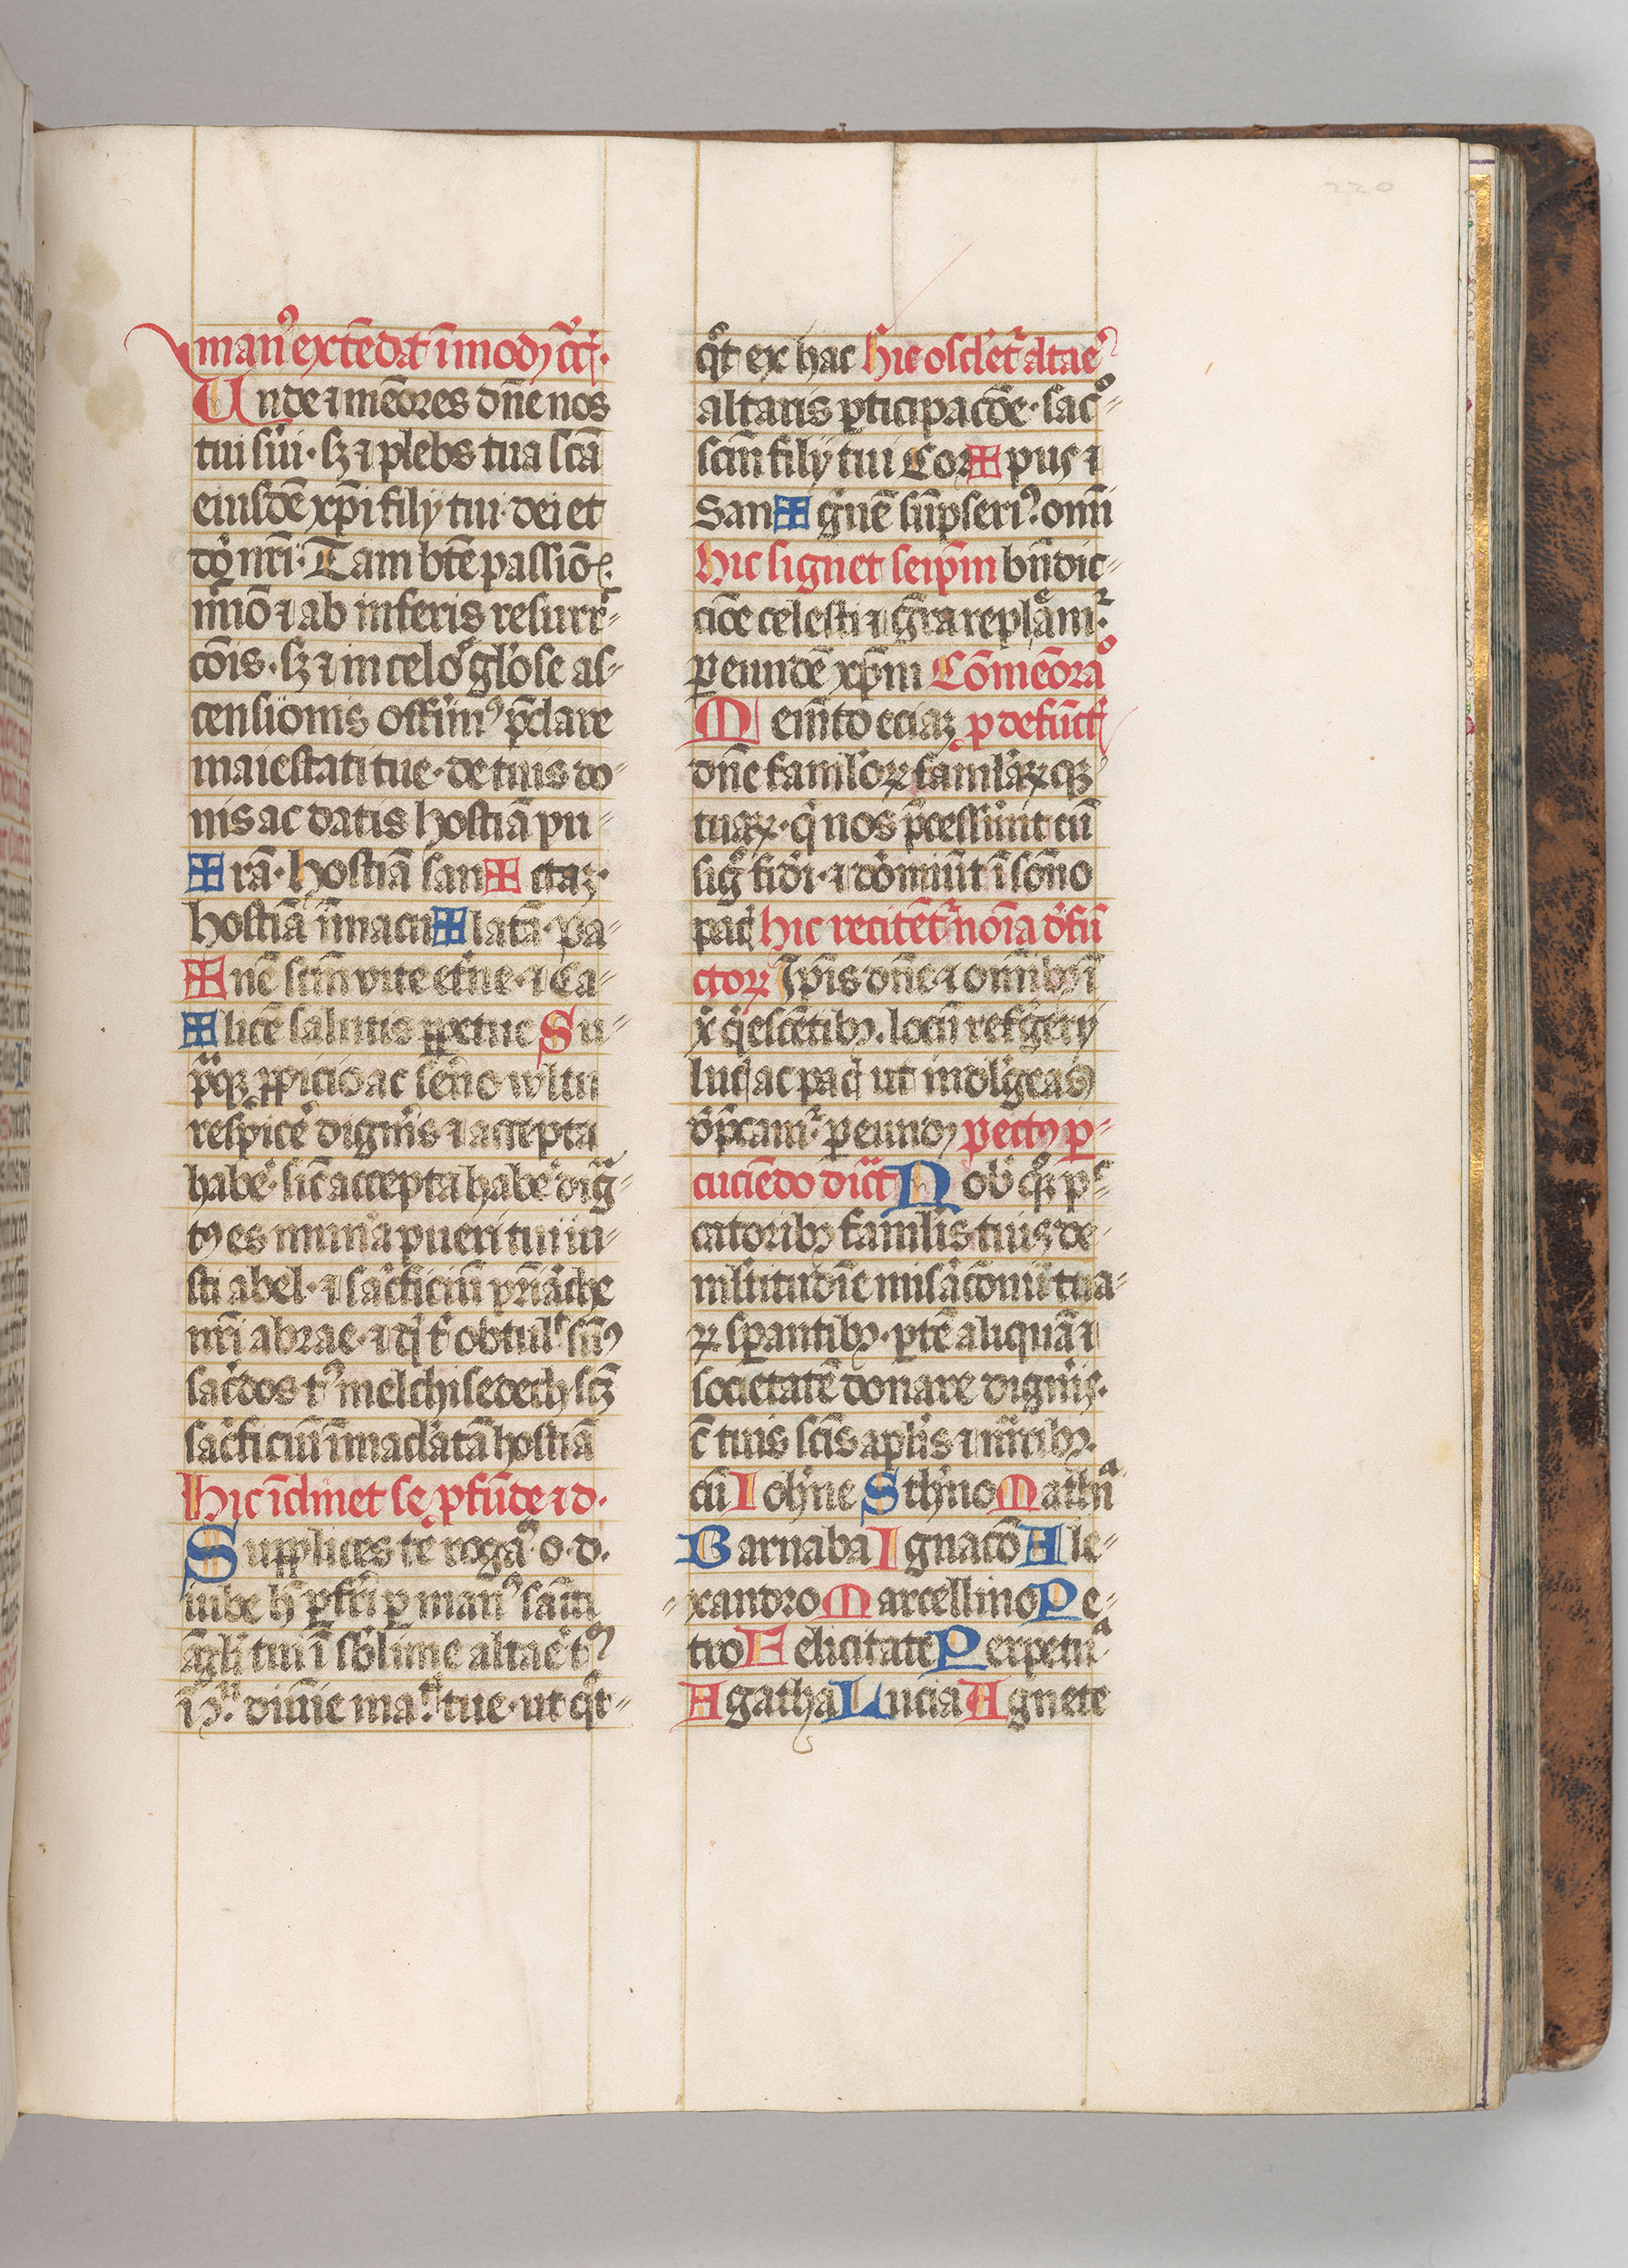 220
man⁹ extēdat ī modū cruc̄.
Unde ⁊ mēores dn̄e nos
tui sūi · sꝫ ⁊ plebs tua scā
eiusdē xp̄i filÿ tui · dei et
dn̄i nr̄i · Tam btē passiōꝭ ·
nͥmiō ⁊ ab inferis resurre⸗
cōis · sꝫ ⁊ in celos glōse as⸗
censionis offerim⁹ p̄clare
maiestati tue · de tuis do⸗
nis ac datis hostiā pu⸗
✠ rā · hostiā san ✠ ctaꝫ ·
hostiā īmacu ✠ latā · pa⸗
✠ nē scm̄ vite etn̄e · ⁊ Ca⸗
✠ licē salutis ꝑpetue Su⸗
p̄ qꝫ ꝓpicio ac sen̄o vultu
respic̄e dignͥs ⁊ accepta
habe͛ · sic̄ accepta habe͛ dig̃⸗
tꝰ es mun̄a pueri tui iu⸗
sti abel · ⁊ sac̄ficiū pr̄iāche
nr̄i abrae · ⁊ qd̄ t obtulͭ sūm⁹
sac̄dos tu⁹ melchisedech scm̄
sac̄ficiū īmaclātā hostiā
Hic īclinet se ꝓfūde ⁊ d ·
Supplices te rogam⁹ o · d ·
iube h̄ ꝑferri ꝑ man⁹ sancti
āgli tui ī sublime altare tuū
ī ɔ̄spectu diuīe maͭⁱˢ tue · ut qͦt⸗
qͦt ex hac Hic osclet̄ altare
altaris ꝑticipacōe · sacͦ⸗
scm̄ filÿ tui Cor ✠ pus ⁊
San ✠ guīē sūpserim⁹ om̄i
Hic signet seip̄m bn̄dic⸗
cōe celesti ⁊ gr̄a repleam̄ʳ
ꝑ eundē xp̄m Cōmeōraͦ
Memēto eciaꝫ ꝓ defūct̄
dn̄e famlōꝝ famlāꝝ qꝫ
tuaꝝ · qͥ nos p̄cesserūt cū
sigͦ fidei · ⁊ dormiūt ī sōno
pacꝭ hic recitēt̄ nōīa defū
ctoꝝ Ip̄is dn̄e ⁊ om̄ibꝫ ī
xͦ qͥescētibꝫ · locū ref͛gerÿ
lucꝭ ac pacꝭ ut indulgeas
dep̄cam̄ʳ ꝑ eundꝫ pectꝰ ꝑ⸗
cuciēdo dicat Nob̄ qͦqꝫ pec⸗
catoribꝫ famlis tuis de
mltitudīe misāconū tua⸗
ꝝ sꝑantibꝫ · ꝑtē aliquā ⁊
societatē donare dignͥs ·
c̄ tuis scīs aplis ⁊ mr̄ibꝫ ·
cū Iohn̄e Sthn̄o Mathīᵃ
Barnaba Ignacō Ale⸗
⸗xandro Marcellino Pe⸗
tro Felicitate Perpetuᵃ
Agatha Lucia Agnete